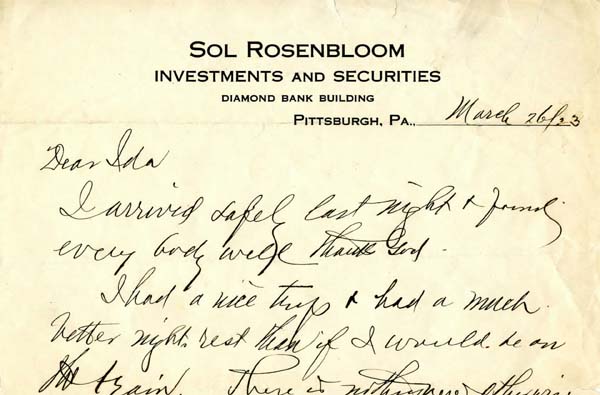 SOL ROSENBLOOM
INVESTMENTS AND SECURITIES
DIAMOND BANK BUILDING
PITTSBURGH, PA., March 26/23
Dear Ida
I arrived safely last night & found
every body well thank God.
I had a nice trip & had a much
better night's rest than if I would be on
the train. There is nothing new otherwise